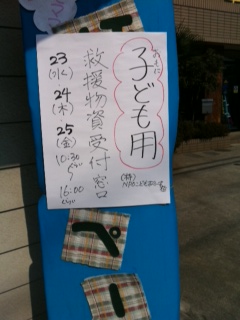 おもに
子ども用
救援物資受付窓口
23
(水)
24
(木)
25
(金)
10:30
ぐらい
〜
16:00
ぐらい
ペ
ー